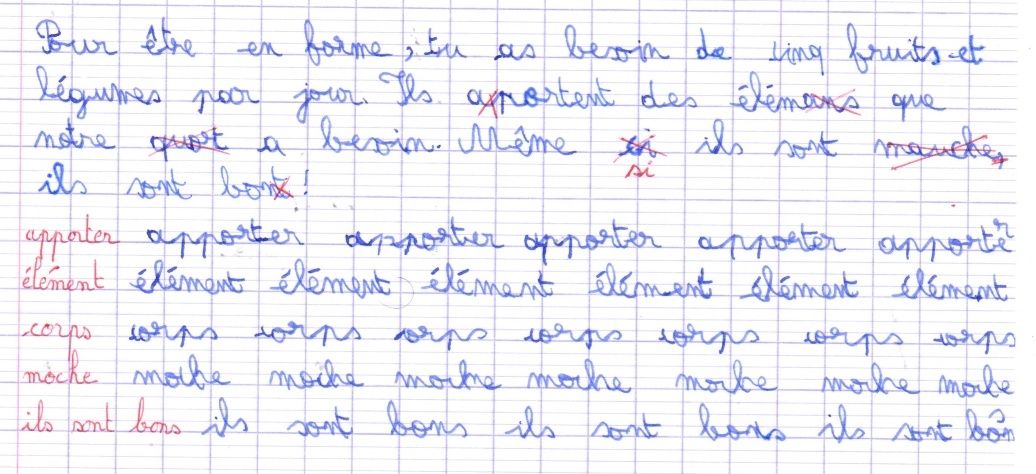 Pour être en forme, tu as besoin de cinq fruits et
légumes par jour. Ils aportent des élémans que
notre quort a besoin. Même ci ils sont mauche,
si
ils sont bont !
apporter apporter apporter apporter apporter apporter
élément élément élément élément élément élément élément
corps corps corps corps corps corps corps corps
moche moche moche moche moche moche moche moche
ils sont bons ils sont bons ils sont bons ils sont bon